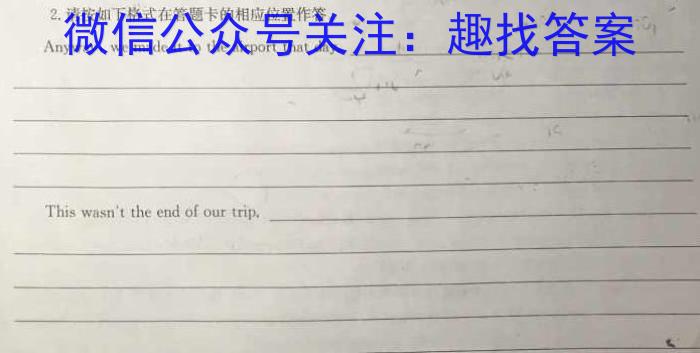 2.请按如下格式在答题卡的相应位置作答
微信公众号关注：趣找答案
Anyway, we made it to the airport that day
This wasn't the end of our trip,